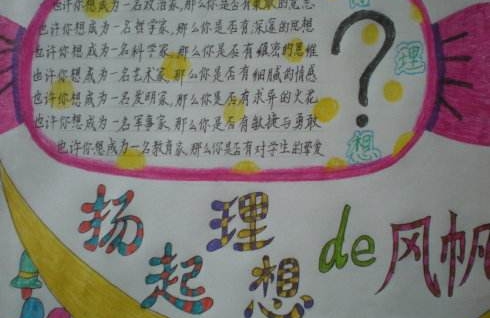 也许你想成为一名政治家,那么你是否有
也许你想成为一名哲学家,那么你是否有深邃的思想
也许你想成为一名科学家,那么你是否有缜密的思维
也许你想成为一名艺术家,那么你是否有细腻的情感
也许你想成为一名发明家,那么你是否有求异的火花
也许你想成为一名军事家,那么你是否有敏捷与勇敢
也许你想成为一名教育家,那么你是否有对学生的挚爱
理
?
想
扬起理想de风帆